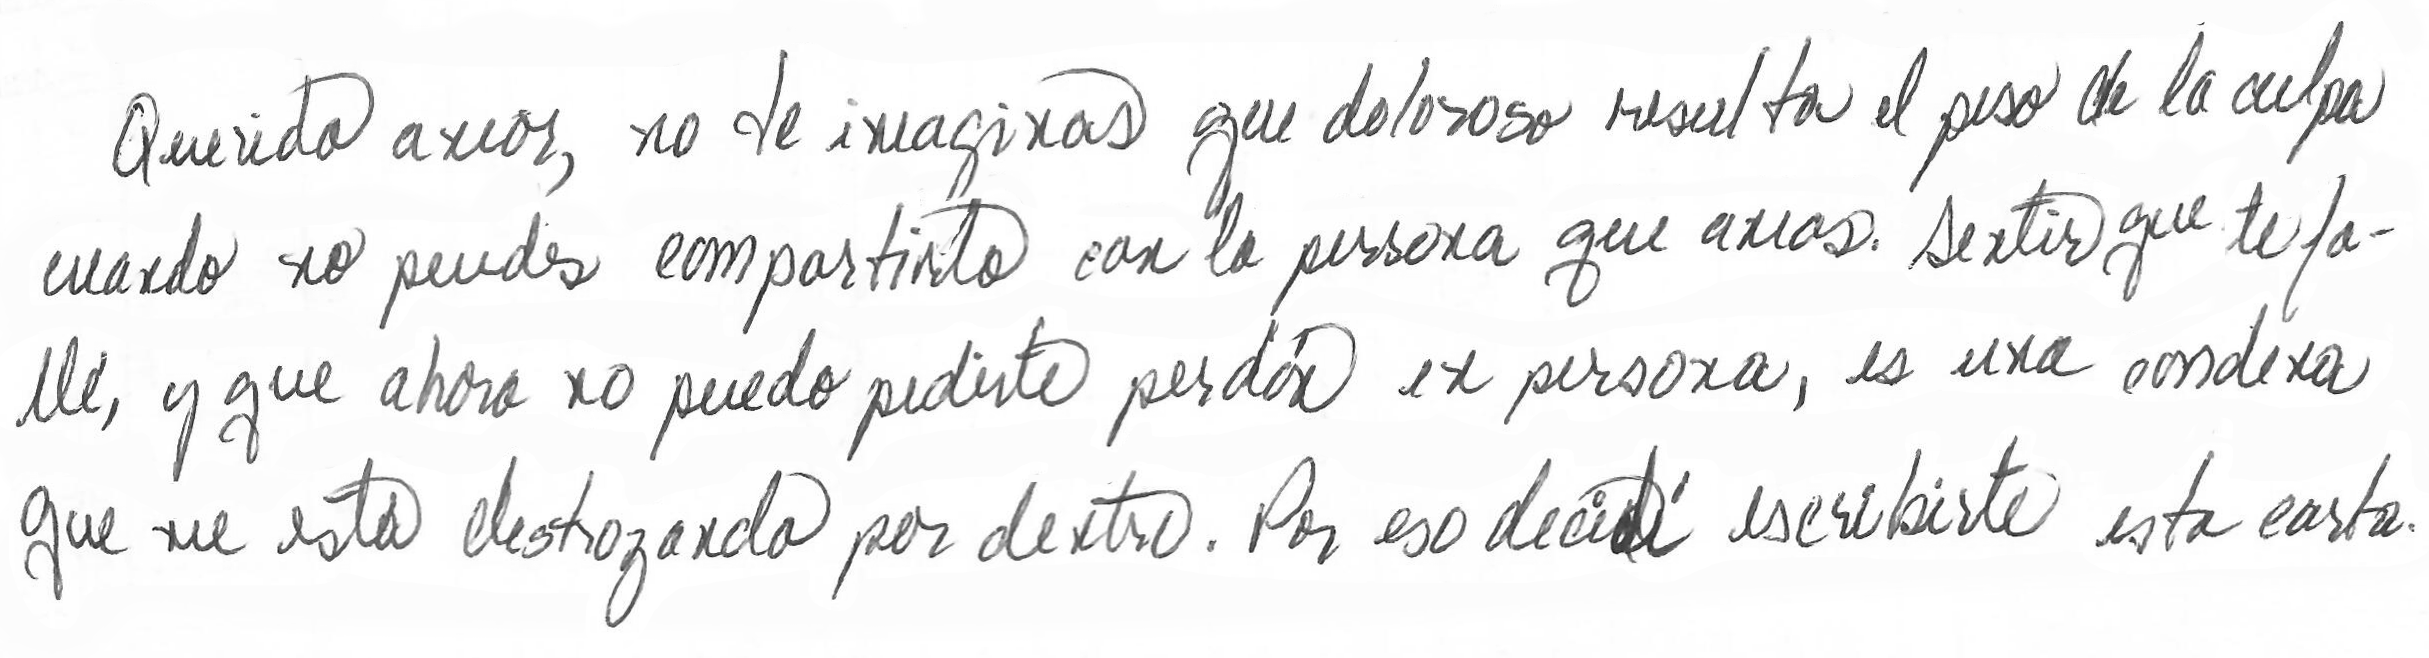 Querido amor, no te imaginas que doloroso resulta el peso de la culpa
cuando no puedes compartirlo con la persona que amas. Sentir que te fa-
llé, y que ahora no puedo pedirte perdón en persona, es una condena
que me está destrozando por dentro. Por eso decidí escribirte esta carta.